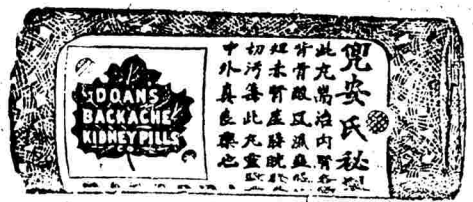 DOANS
BACKACHE
KIDNEY PILLS
兜安氏秘
此丸耑治內腎
背骨酸及濕
腎虛膀胱
切污毒此丸靈
中外真良藥也